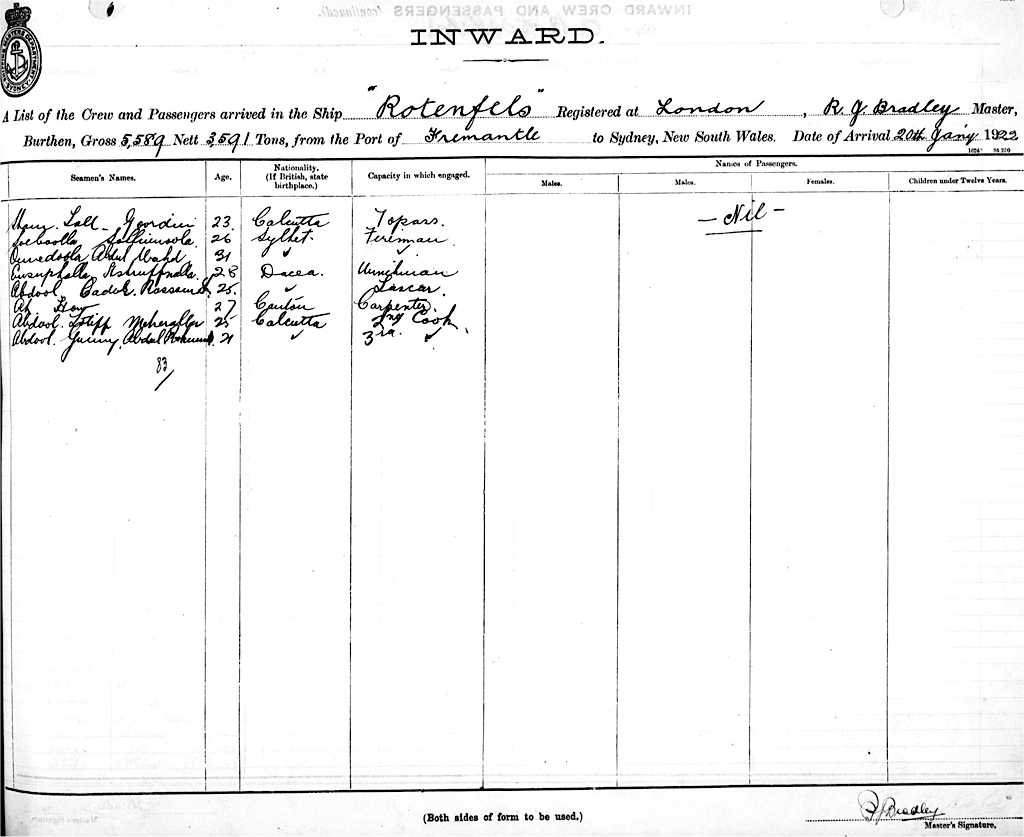 INWARD AND CREW AND PASSENGERS (continued).
INWARD.
A List of the Crew and Passengers arrived in the Ship "Rotenfels" Registered at London, R. J. Bradley Master,
Burthen, Gross 5,589 Nett 3,591 Tons, from the Port of Fremantle to Sydney, New South Wales. Date of Arrival 20th Jany 1922
Names of Passengers.
Seamen's Names. Age. Nationality. (If British, state birthplace.) Capacity in which engaged. Males. Males. Females. Children under Twelve Years.
— Nil —
Lall 23 Calcutta Topass.
26 Sylhet. Fireman
Abdul Wahd 31 ✓ ✓
28 Dacca.
Abdool 25 ✓ Lascar.
Ah Hoy 27 Canton Carpenter.
Abdool 25 Calcutta Cook
Abdool Abdul 21 ✓ ✓
83/
(Both sides of form to be used.)
R J Bradley
Master's Signature.